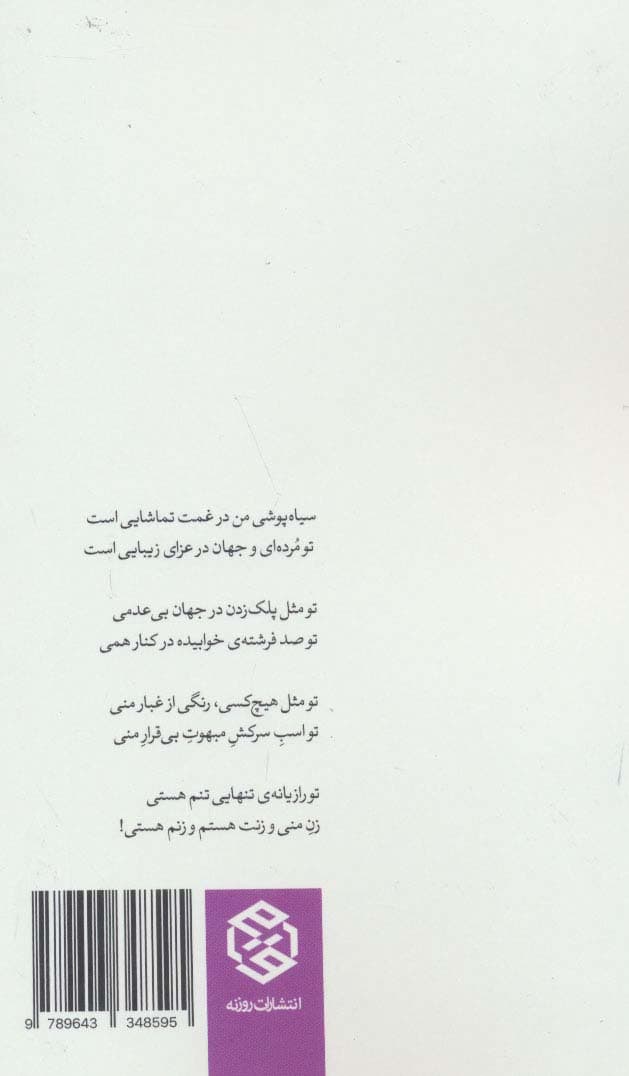 سیاه‌پوشی من در غمت تماشایی است
تو مُرده‌ای و جهان در عزای زیبایی است
تو مثل پلک‌زدن در جهان بی‌عدمی
تو صد فرشته‌ی خوابیده در کنار همی
تو مثل هیچ‌کسی، رنگی از غبار منی
تو اسبِ سرکشِ مبهوتِ بی‌قرارِ منی
تو رازیانه‌ی تنهایی تنم هستی
زنِ منی و زنت هستم و زنم هستی!
انتشارات روزنه
9 789643 348595